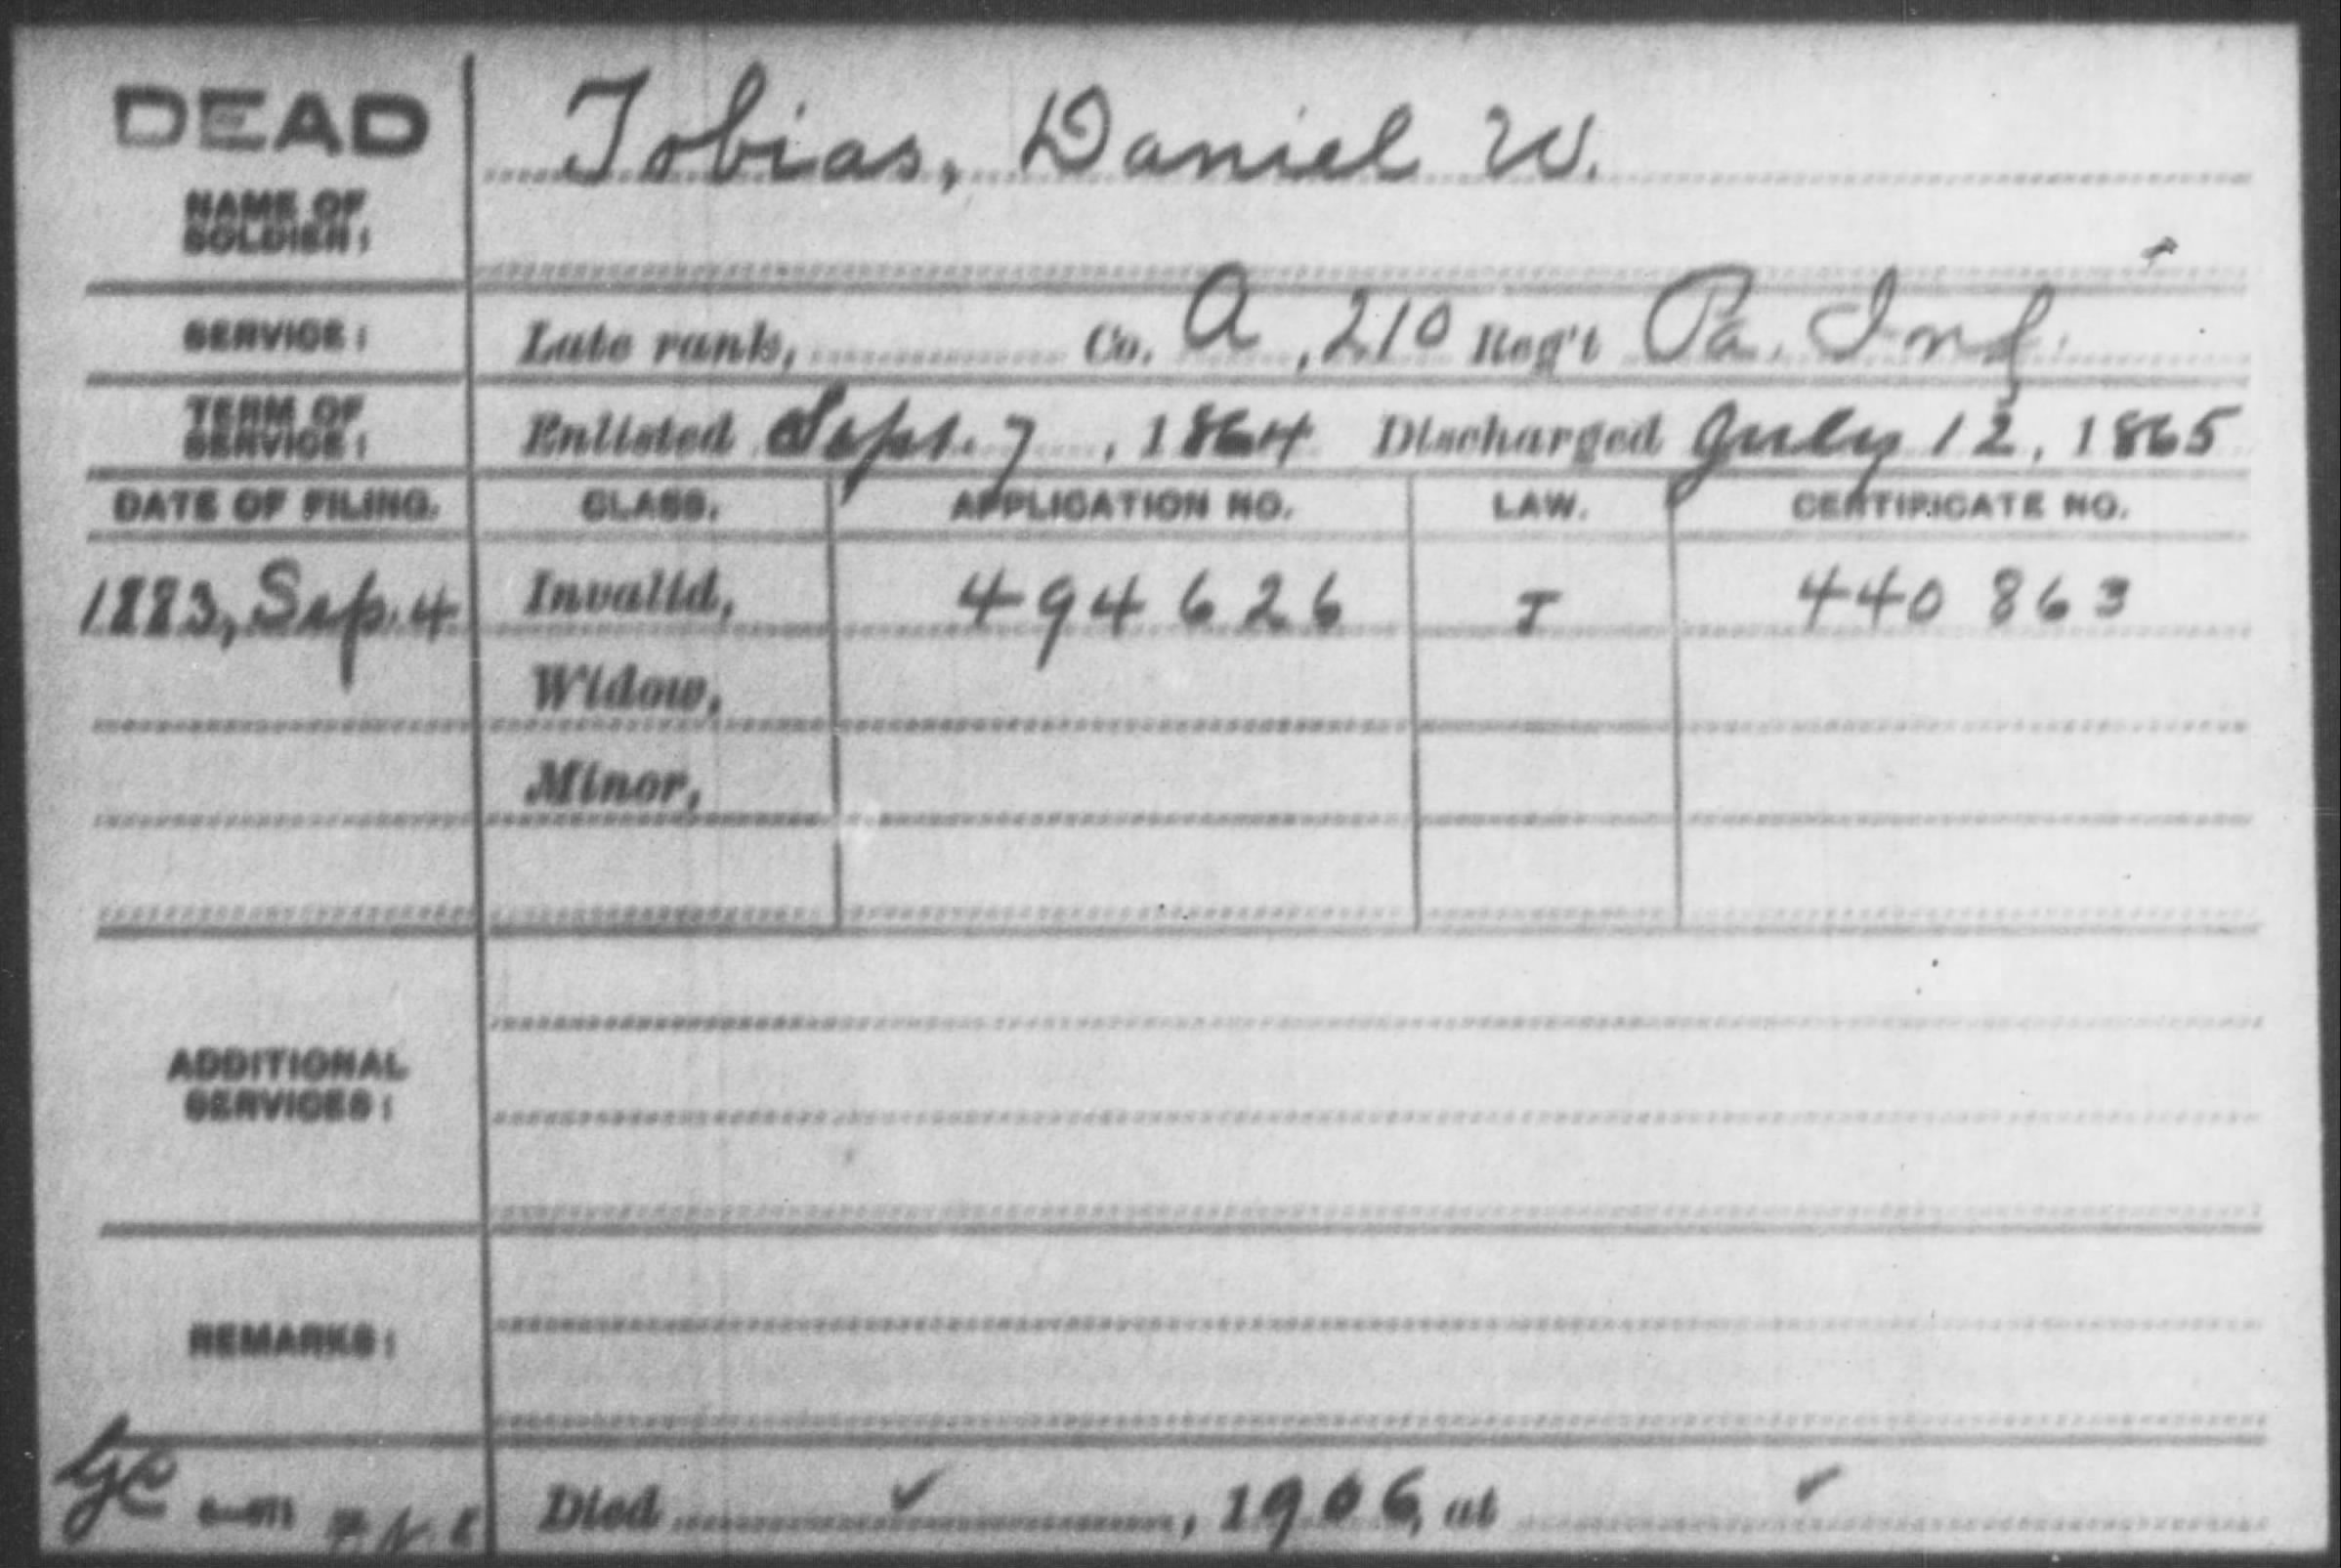 DEAD
Tobias, Daniel W.
NAME OF
SOLDIER:
SERVICE: Late rank, Co. A, 210 Reg't Pa. Inf.
TERM OF
SERVICE: Enlisted Sept. 7, 1864 Discharged July 12, 1865
DATE OF FILING. CLASS. APPLICATION NO. LAW. CERTIFICATE NO.
1883, Sep. 4 Invalid, 494626 J 440863
Widow,
Minor,
ADDITIONAL
SERVICES:
REMARKS:
Died ✓, 1906, at ✓